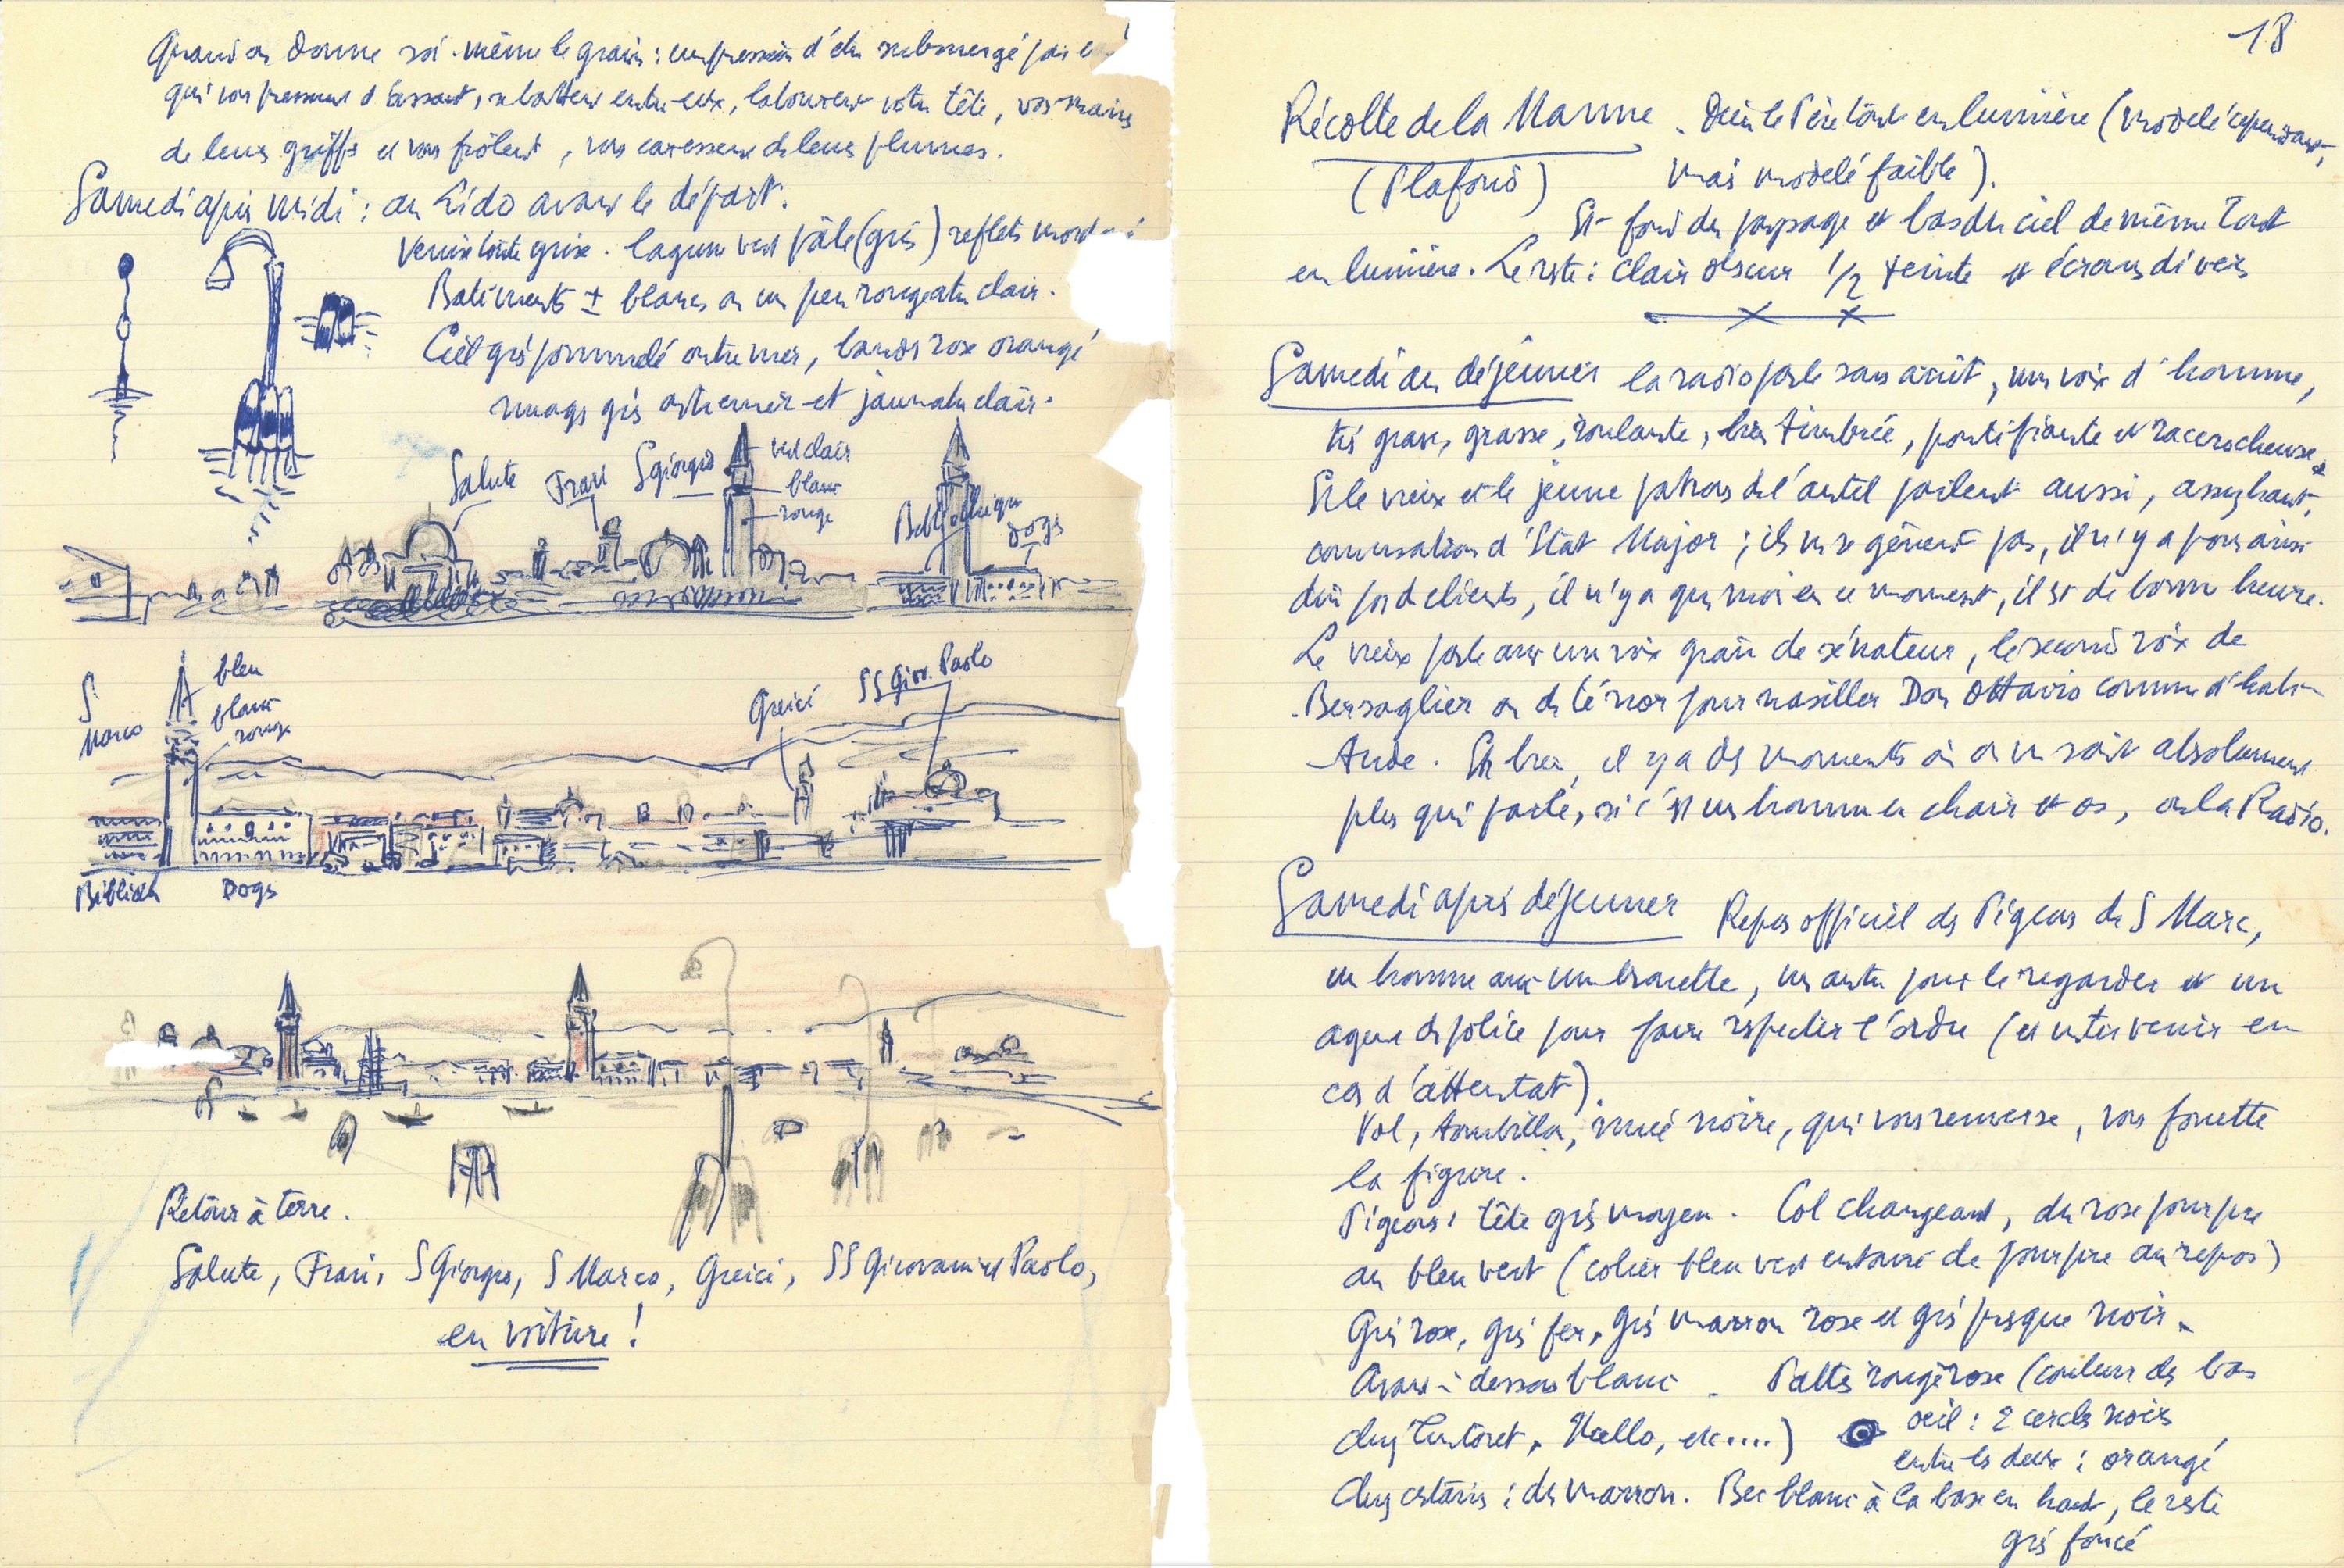 Quand on donne soi-même le grain : impression d'être submergé par
qui vous prennent d'assaut, se battent entre eux, labourent votre tête, vos mains
de leurs griffes et vous frôlent, vous caressent de leurs plumes.
Samedi après midi : au Lido avant le départ.
Venise toute grise. lagune vert pâle (gris) reflets
Batiments ± blancs ou un peu rougeatre clair.
Ciel gris pommelé outremer, bande rose orangé
nuages gris outremer et jaunatre clair.
Salute
Frari
S Giorgio
vert clair
blanc
rouge
Bibliothèque
Doges
S Marco
bleu
blanc
rouge
Greici
SS Giov. Paolo
Doges
Retour à terre.
Salute, Frari, S Giorgio, S Marco, Greici, SS Giovanni et Paolo,
en voiture !
18
Récolte de la Manne . Dieu le Père tout en lumière (modelé cependant,
(Plafond) mais modelé faible).
Et fond du paysage et bas du ciel de même tout
en lumière. Le reste : clair obscur 1/2 teinte et écrans divers
Samedi au déjeuner la radio parle sans arrêt, une voix d'homme,
très grave, grasse, roulante, bien timbrée, pontifiante et raccrocheuse.
Et le vieux et le jeune patrons de l'autel parlent aussi, assez haut,
conversation d'Etat Major ; ils ne se gênent pas, il n'y a pour ainsi
dire pas de clients, il n'y a que moi en ce moment, il est de bonne heure.
Le vieux parle avec une voix grave de sénateur, le second voix de
Bersaglier ou de ténor pour nasiller Don Ottavio comme d'habi-
tude. Et bien, il y a des moments où on ne sait absolument
plus qui parle, si c'est un homme en chair et os, ou la Radio.
Samedi après déjeuner Repas officiel des Pigeons de S Marc,
un homme avec une brouette, un autre pour le regarder et un
agent de police pour faire respecter l'ordre (et intervenir en
cas d'attentat).
Vol, tourbillon, nuée noire, qui vous renverse, vous fouette
la figure.
Pigeons : tête gris moyen. Col changeant, du rose pourpre
au bleu vert (collier bleu vert entouré de pourpre au repos)
Gris rose, gris fer, gris marron rose et gris presque noir.
dessous blanc . Pattes rouge rose (couleur des bas
chez Tintoret, Uccello, etc....) oeil : 2 cercles noirs
entre les deux : orangé
chez certains : du marron. Bec blanc à la base en haut, le reste
gris foncé